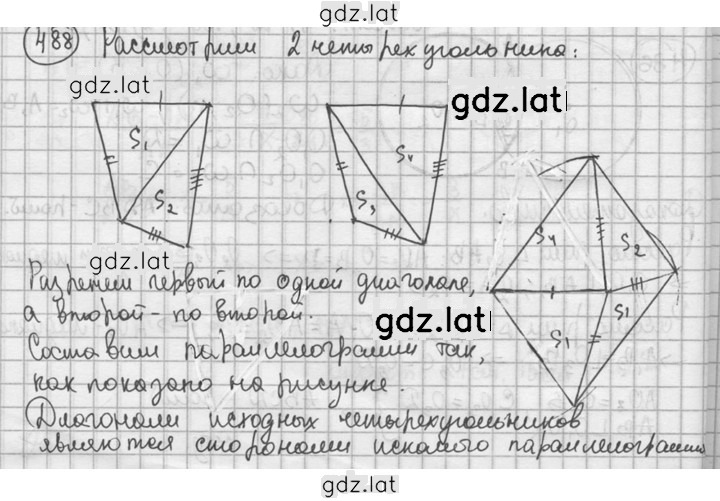 gdz.lat
488 Рассмотрим 2 четырехугольника:
gdz.lat
gdz.lat
S₁
S₂
S₃
S₄
S₄
S₂
S₁
S₁
gdz.lat
Разрежем первый по одной диагонале,
а второй - по второй.
gdz.lat
Составим параллелограмм так,
как показано на рисунке.
Диагонали исходных четырехугольников
являются сторонами искомого параллелограмма
gdz.lat